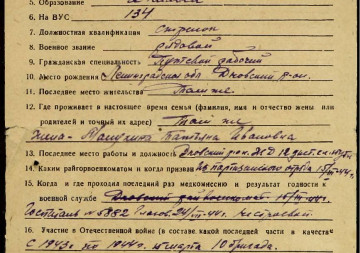 5. Образование
6. На ВУС 134
7. Должностная квалификация Стрелок
8. Военное звание рядовой
9. Гражданская специальность Путевой рабочий
10. Место рождения Ленинградская обл Дновский р-он.
11. Последнее место жительства Там же
12. Где проживает в настоящее время семья (фамилия, имя и отчество жены или
родителей и точный их адрес) Там же
Жена Татьяна Ивановна
13. Последнее место работы и должность Дновский рон. ЖД 12
14. Каким райгорвоенкоматом и когда призван из партизанского отряда 15/III-44г.
15. Когда и где проходил последний раз медкомиссию и результат годности к
военной службе Дновский райвоенкомат 15/III-44г.
16. Участие в Отечественной войне (в составе какой последней части и в качестве
С 1943г по 1944г 10 бригада.